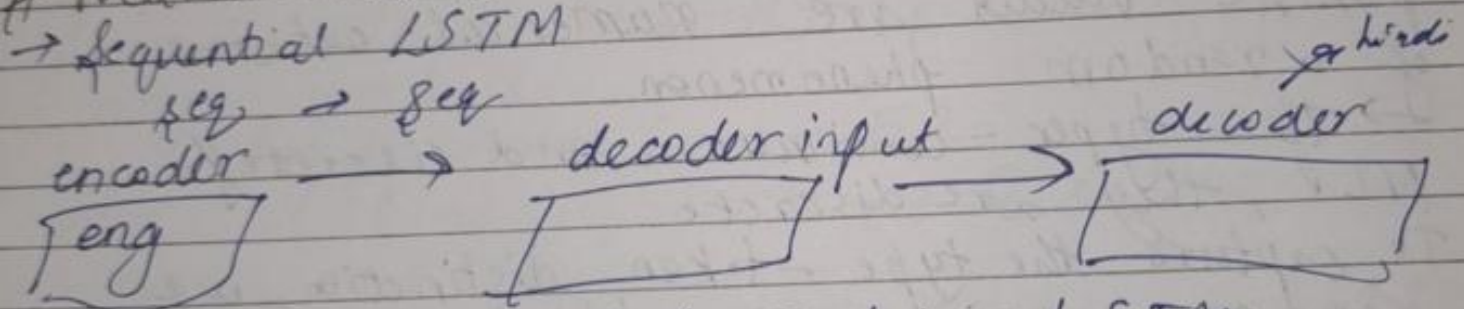 → Sequential LSTM
seq → seq
hindi
encoder → decoder input → decoder
eng